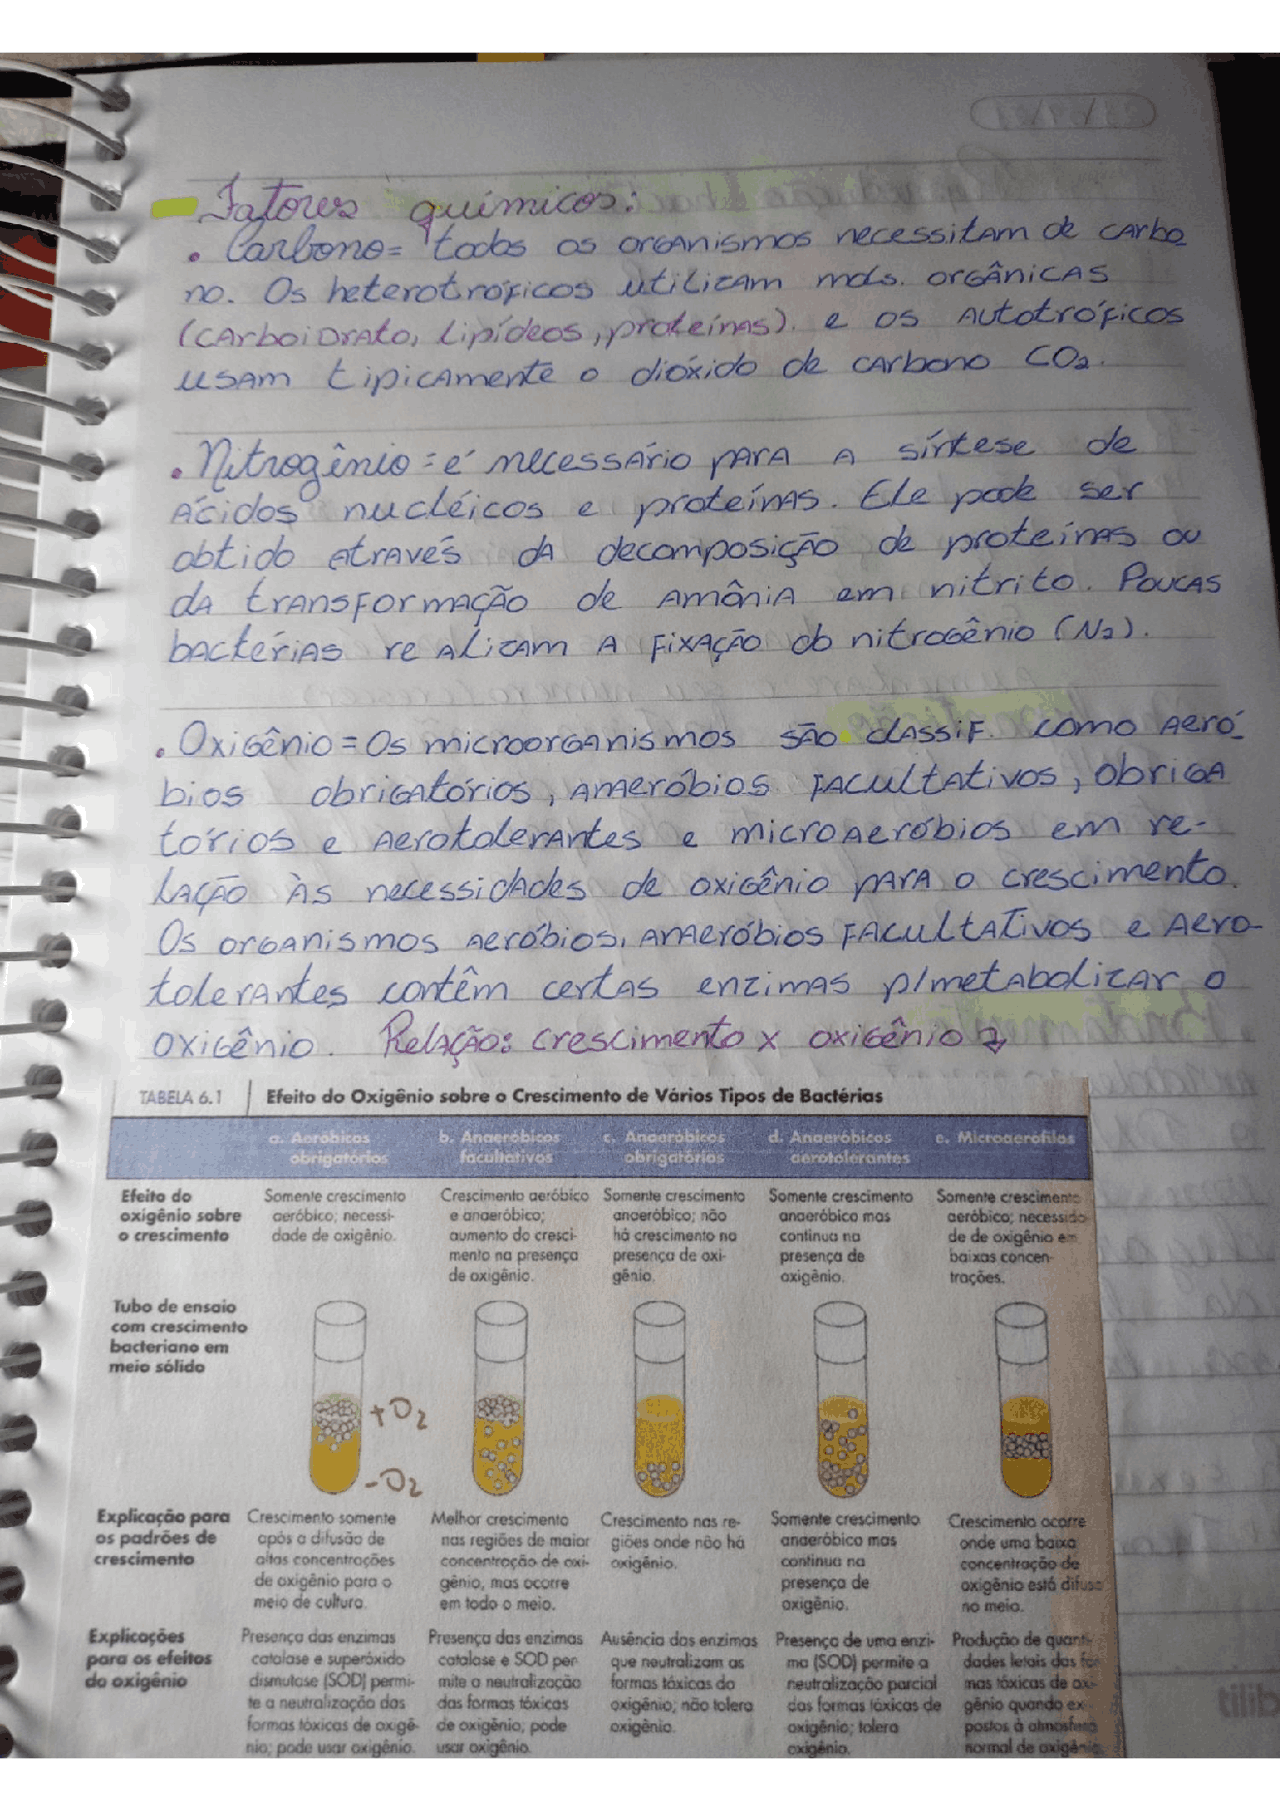 Fatores químicos:
• Carbono = todos os organismos necessitam de carbo
no. Os heterotróficos utilizam mols. orgânicas
(carboidrato, lipídeos, proteínas). e os autotróficos
usam tipicamente o dióxido de carbono CO₂.
• Nitrogênio = é necessário para a síntese de
ácidos nucléicos e proteínas. Ele pode ser
obtido através da decomposição de proteínas ou
da transformação de amônia em nitrito. Poucas
bactérias realizam a fixação do nitrogênio (N₂).
• Oxigênio = Os microorganismos são classif. como aeró-
bios obrigatórios, anaeróbios facultativos, obriga
tórios e aerotolerantes e microaeróbios em re-
lação às necessidades de oxigênio para o crescimento.
Os organismos aeróbios, anaeróbios facultativos e aero-
tolerantes contêm certas enzimas p/metabolizar o
oxigênio. Relação: crescimento x oxigênio
TABELA 6.1 Efeito do Oxigênio sobre o Crescimento de Vários Tipos de Bactérias
a. Aeróbicos obrigatórios
b. Anaeróbicos facultativos
c. Anaeróbicos obrigatórios
d. Anaeróbicos aerotolerantes
e. Microaerófilos
Efeito do
oxigênio sobre
o crescimento
Somente crescimento
aeróbico; necessi-
dade de oxigênio.
Crescimento aeróbico
e anaeróbico;
aumento do cresci-
mento na presença
de oxigênio.
Somente crescimento
anaeróbico; não
há crescimento na
presença de oxi-
gênio.
Somente crescimento
anaeróbico mas
continua na
presença de
oxigênio.
Somente crescimento
aeróbico; necessida-
de de oxigênio em
baixas concen-
trações.
Tubo de ensaio
com crescimento
bacteriano em
meio sólido
+O₂
-O₂
Explicação para
os padrões de
crescimento
Crescimento somente
após a difusão de
altas concentrações
de oxigênio para o
meio de cultura.
Melhor crescimento
nas regiões de maior
concentração de oxi-
gênio, mas ocorre
em todo o meio.
Crescimento nas re-
giões onde não há
oxigênio.
Somente crescimento
anaeróbico mas
continua na
presença de
oxigênio.
Crescimento ocorre
onde uma baixa
concentração de
oxigênio está difusa
no meio.
Explicações
para os efeitos
do oxigênio
Presença das enzimas
catalase e superóxido
dismutase (SOD) permi-
te a neutralização das
formas tóxicas de oxigê-
nio; pode usar oxigênio.
Presença das enzimas
catalase e SOD per-
mite a neutralização
das formas tóxicas
de oxigênio; pode
usar oxigênio.
Ausência das enzimas
que neutralizam as
formas tóxicas do
oxigênio; não tolera
oxigênio.
Presença de uma enzi-
ma (SOD) permite a
neutralização parcial
das formas tóxicas de
oxigênio; tolera
oxigênio.
Produção de quanti-
dades letais das for-
mas tóxicas de oxi-
gênio quando ex-
postos à atmosfera
normal de oxigênio.
tilib